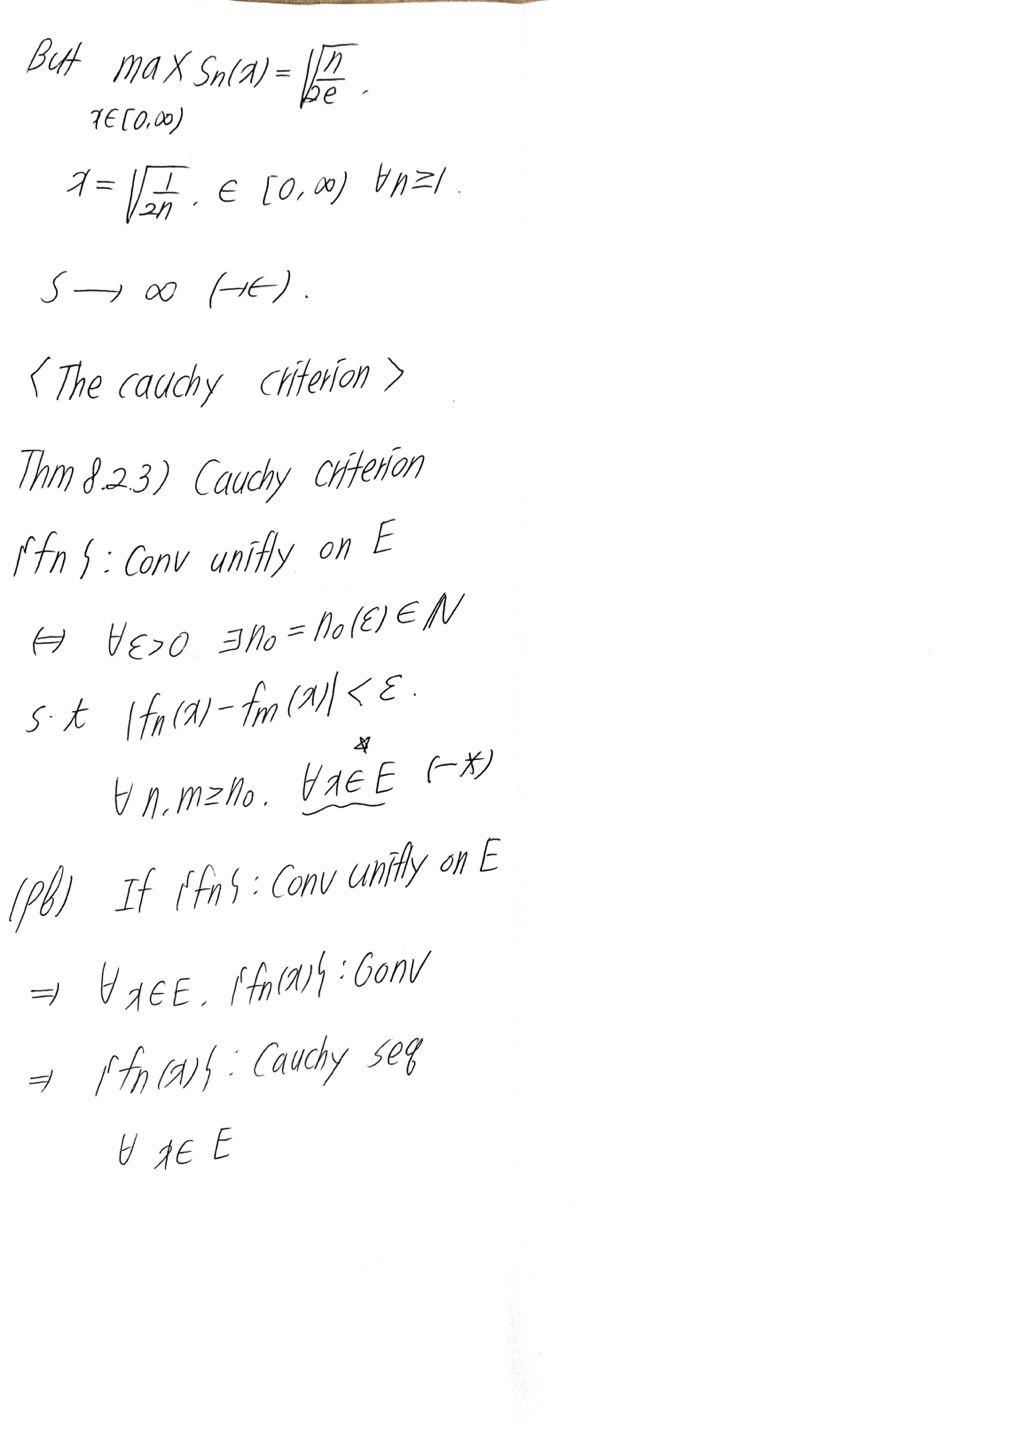 But max Sn(x) = √(n/2e) .
x∈[0,∞)
x = √(1/2n) . ∈ [0, ∞) ∀n≥1 .
S → ∞ (→←) .
<The cauchy criterion>
Thm 8.2.3) Cauchy criterion
{fn} : Conv unifly on E
⇔ ∀ε>0 ∃n₀ = n₀(ε) ∈ ℕ
s.t |fn(x) - fm(x)| < ε .
∀ n, m ≥ n₀ . ∀x∈E (-*)
(pf) If {fn} : Conv unifly on E
⇒ ∀x∈E, {fn(x)} : Conv
⇒ {fn(x)} : Cauchy seq
∀ x∈ E